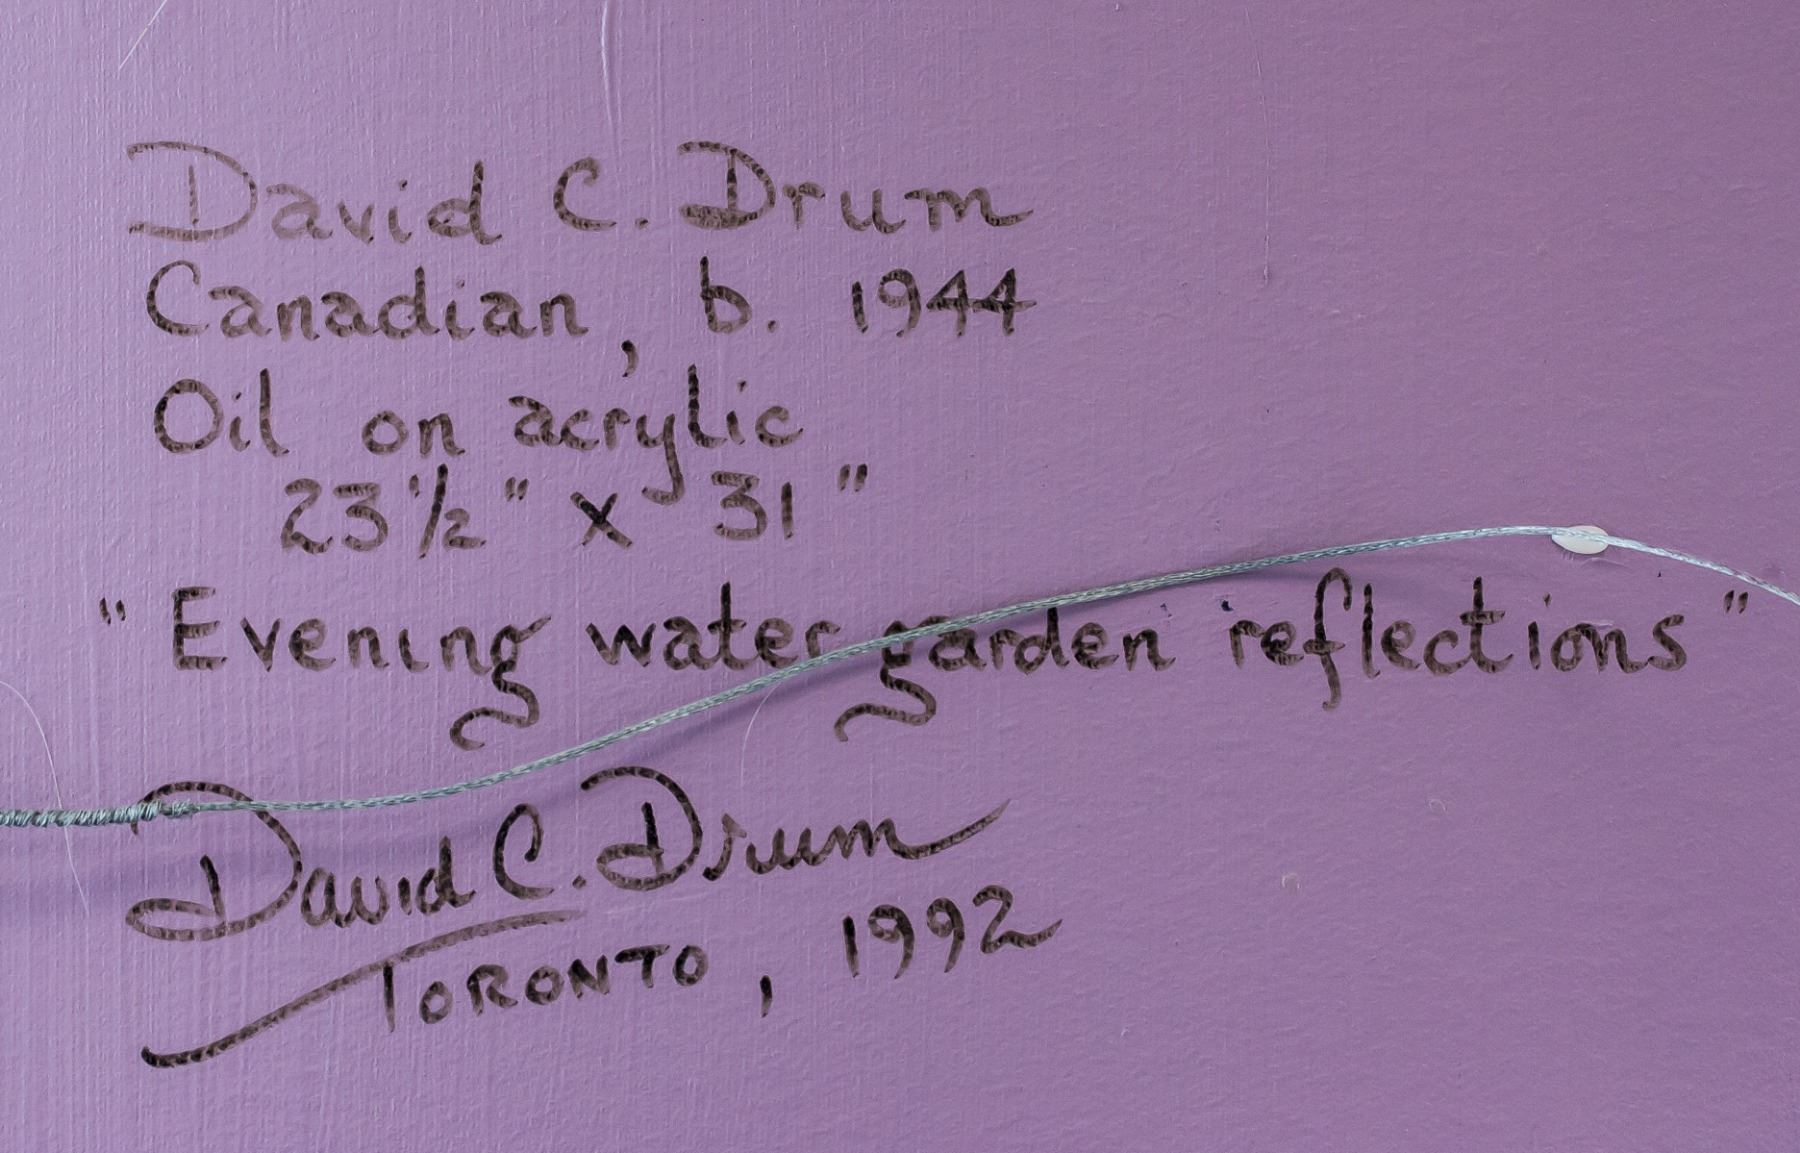 David C. Drum
Canadian, b. 1944
Oil on acrylic
23 1/2" x 31"
"Evening water garden reflections"
David C. Drum
TORONTO, 1992